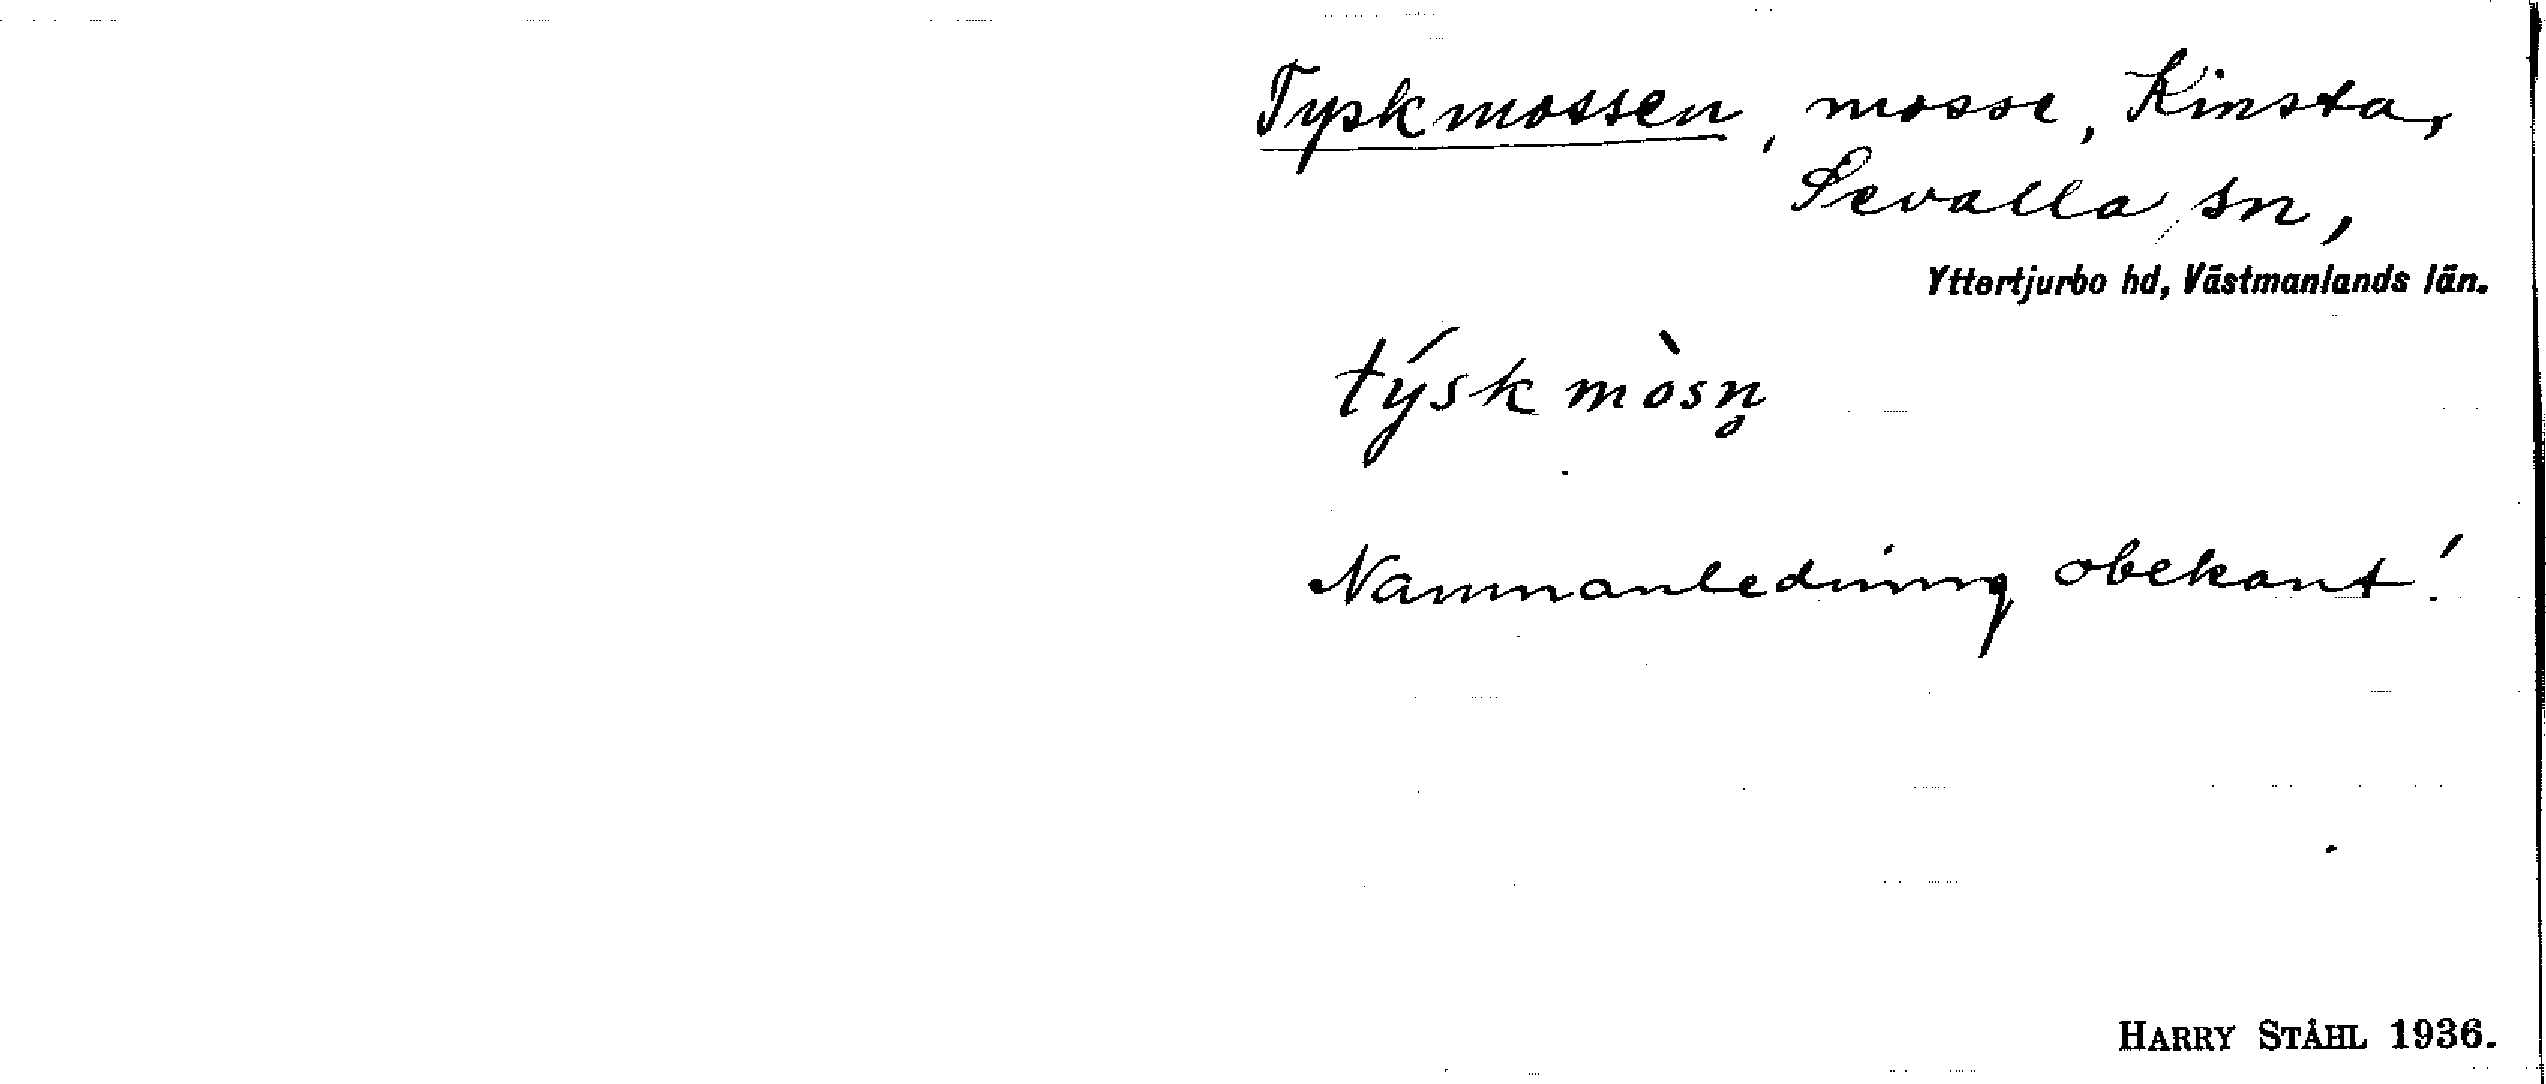 Tyskmossen, mosse, Kinsta,
Sevalla sn,
Yttertjurbo hd, Västmanlands län.
týskmòsn̥
Namnanledning obekant!
HARRY STÅHL 1936.